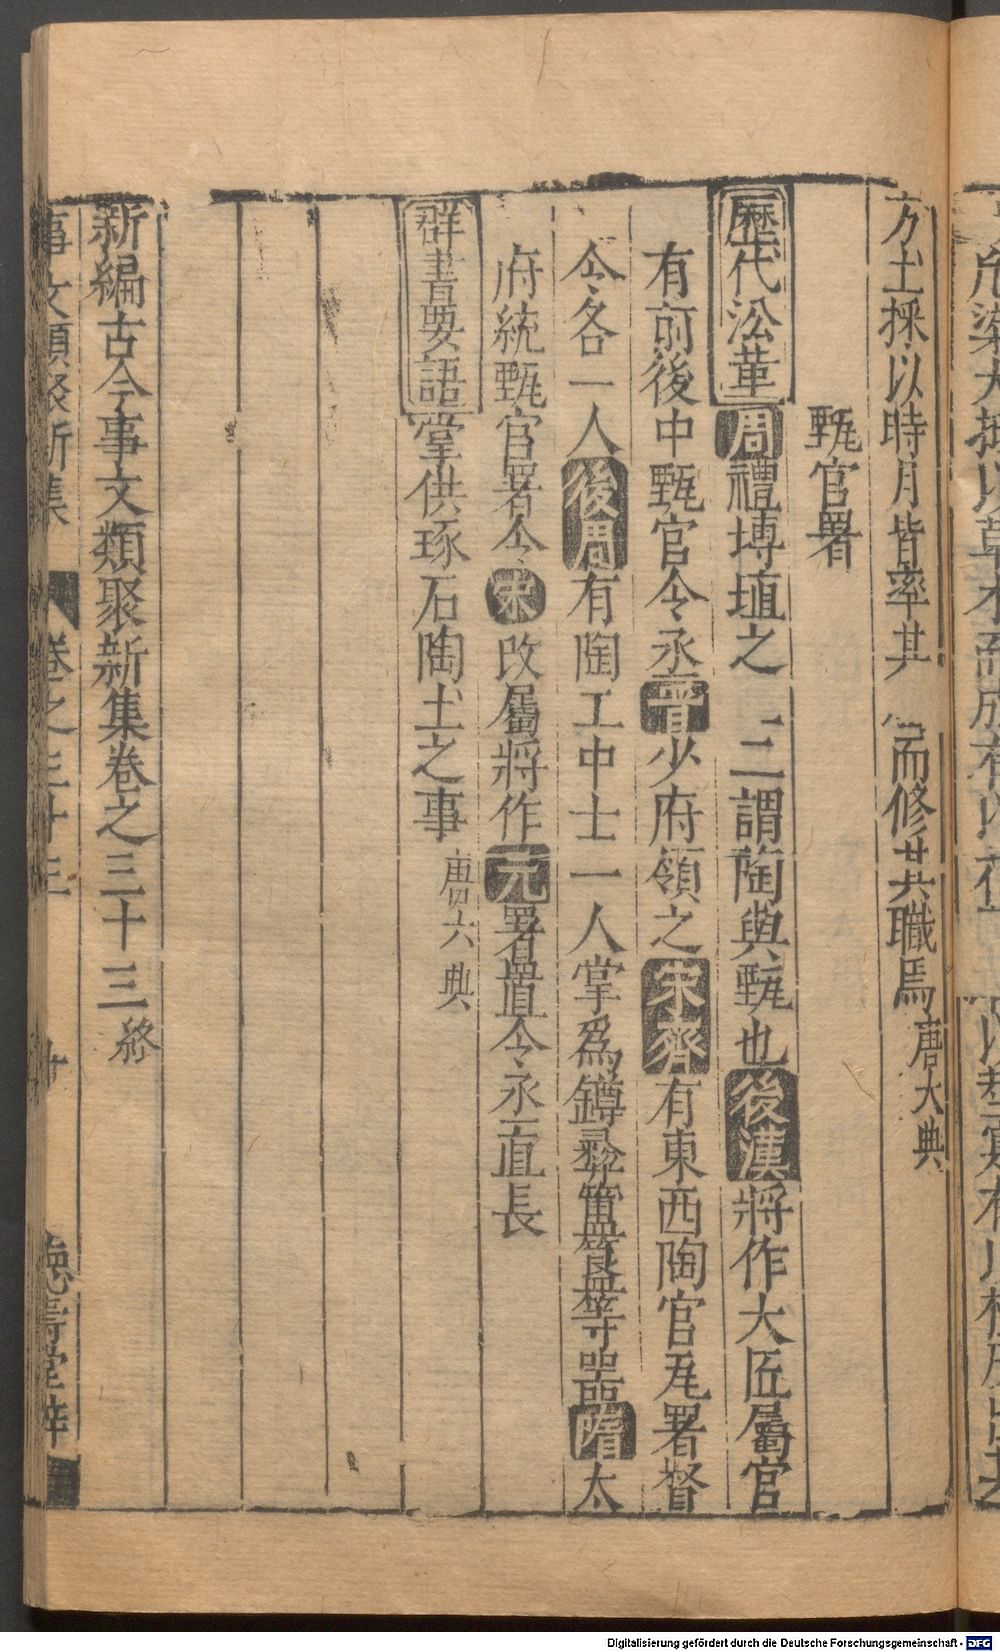 方土採以時月皆率其 而修其職焉唐六典
甄官署
歷代沿革周禮摶埴之 二謂陶與甄也後漢將作大匠屬官
有前後中甄官令丞晉少府領之宋齊有東西陶官瓦署督
令各一人後周有陶工中士一人掌爲鐏彝簠簋等噐隋太
府統甄官署令宋改屬將作元署置令丞直長
群書要語掌供琢石陶土之事唐六典
新編古今事文類聚新集卷之三十三終
事文類聚新集 卷之三十三 十 德壽堂梓
Digitalisierung gefördert durch die Deutsche Forschungsgemeinschaft - DFG